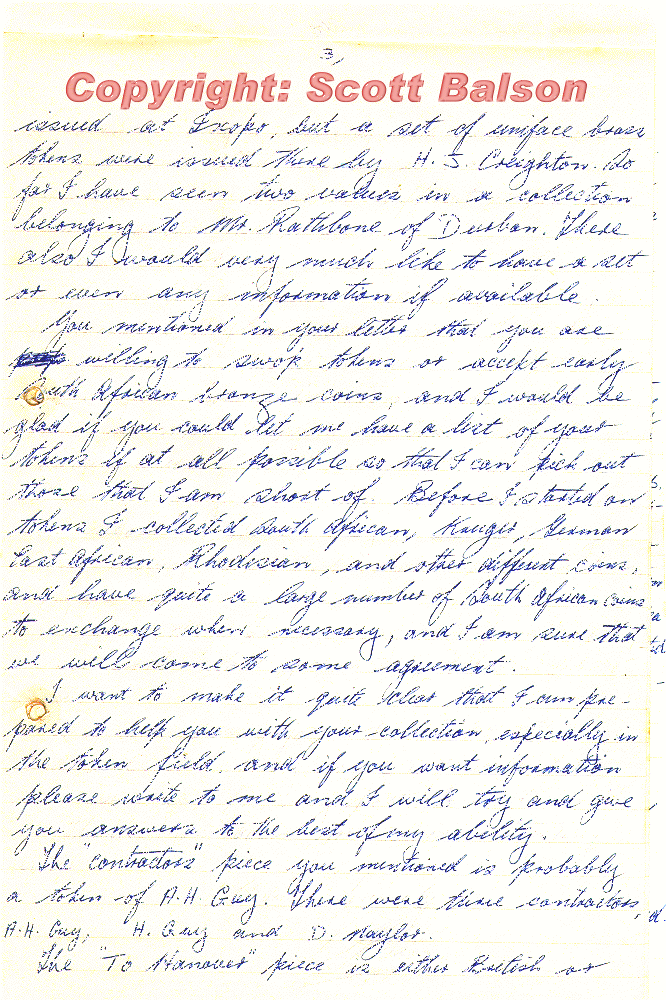 3,
Copyright: Scott Balson
issued at Ixopo, but a set of uniface brass
tokens were issued there by H. J. Creighton. So
far I have seen two values in a collection
belonging to Mr. Rathbone of Durban. These
also I would very much like to have a set
or even any information if available.
You mentioned in your letter that you are
willing to swop tokens or accept early
South African bronze coins, and I would be
glad if you could let me have a list of your
tokens if at all possible so that I can pick out
those that I am short of. Before I started on
tokens I collected South African, Kruger, German
East African, Rhodisian, and other different coins,
and have quite a large number of South African coins
to exchange when necessary, and I am sure that
we will come to some agreement.
I want to make it quite clear that I am pre-
pared to help you with your collection, especially in
the token field, and if you want information
please write to me and I will try and give
you answers to the best of my ability.
The "contractors" piece you mentioned is probably
a token of A.H. Guy. There were three contractors,
A.H. Guy, H. Guy and D. Naylor.
The "To Hanover" piece is either British or